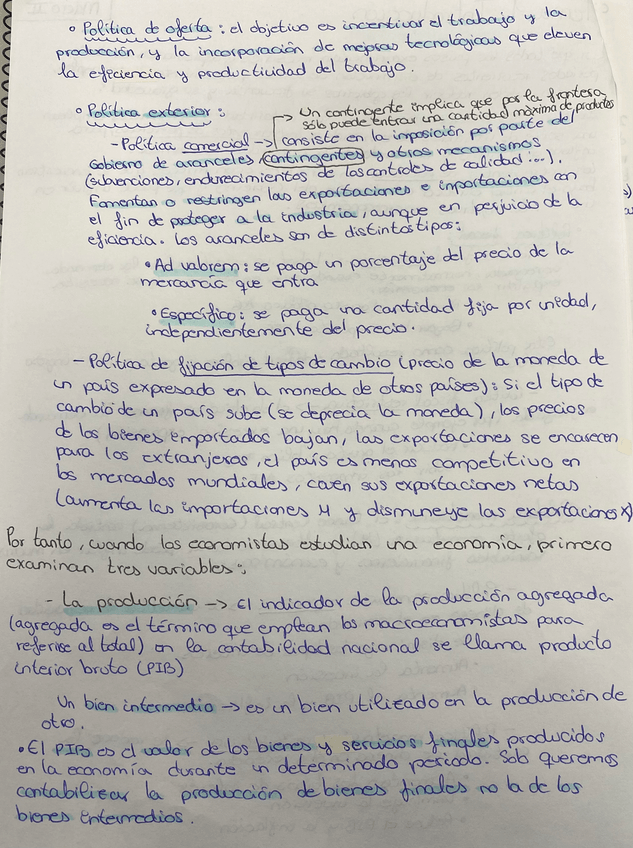 • Política de oferta: el objetivo es incentivar el trabajo y la
producción, y la incorporación de mejoras tecnológicas que eleven
la eficiencia y productividad del trabajo.
• Política exterior:
→ Un contingente implica que por la frontera
sólo puede entrar una cantidad máxima de productos
- Política comercial → consiste en la imposición por parte del
Gobierno de aranceles, contingentes y otros mecanismos
(subvenciones, endurecimientos de los controles de calidad...).
Fomentan o restringen las exportaciones e importaciones con
el fin de proteger a la industria, aunque en perjuicio de la
eficiencia. Los aranceles son de distintos tipos:
• Ad valorem: se paga un porcentaje del precio de la
mercancía que entra
• Específico: se paga una cantidad fija por unidad,
independientemente del precio.
- Política de fijación de tipos de cambio (precio de la moneda de
un país expresado en la moneda de otros países): Si el tipo de
cambio de un país sube (se deprecia la moneda), los precios
de los bienes importados bajan, las exportaciones se encarecen
para los extranjeros, el país es menos competitivo en
los mercados mundiales, caen sus exportaciones netas
(aumenta las importaciones M y disminuye las exportaciones X)
Por tanto, cuando los economistas estudian una economía, primero
examinan tres variables:
- La producción → El indicador de la producción agregada
(agregada es el término que emplean los macroeconomistas para
referirse al total) en la contabilidad nacional se llama producto
interior bruto (PIB)
Un bien intermedio → es un bien utilizado en la producción de
otro.
• El PIB es el valor de los bienes y servicios finales producidos
en la economía durante un determinado periodo. Sólo queremos
contabilizar la producción de bienes finales no la de los
bienes intermedios.